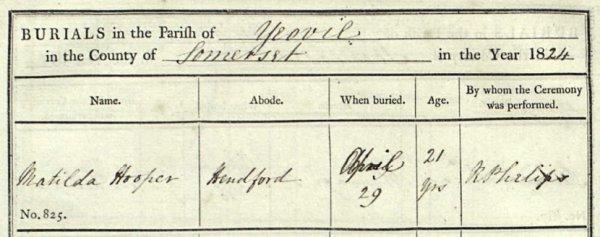 BURIALS in the Parish of Yeovil
in the County of Somerset in the Year 1824
Name. Abode. When buried. Age. By whom the Ceremony was performed.
Matilda Hooper Hendford April 29 21 yrs R Phelips
No. 825.